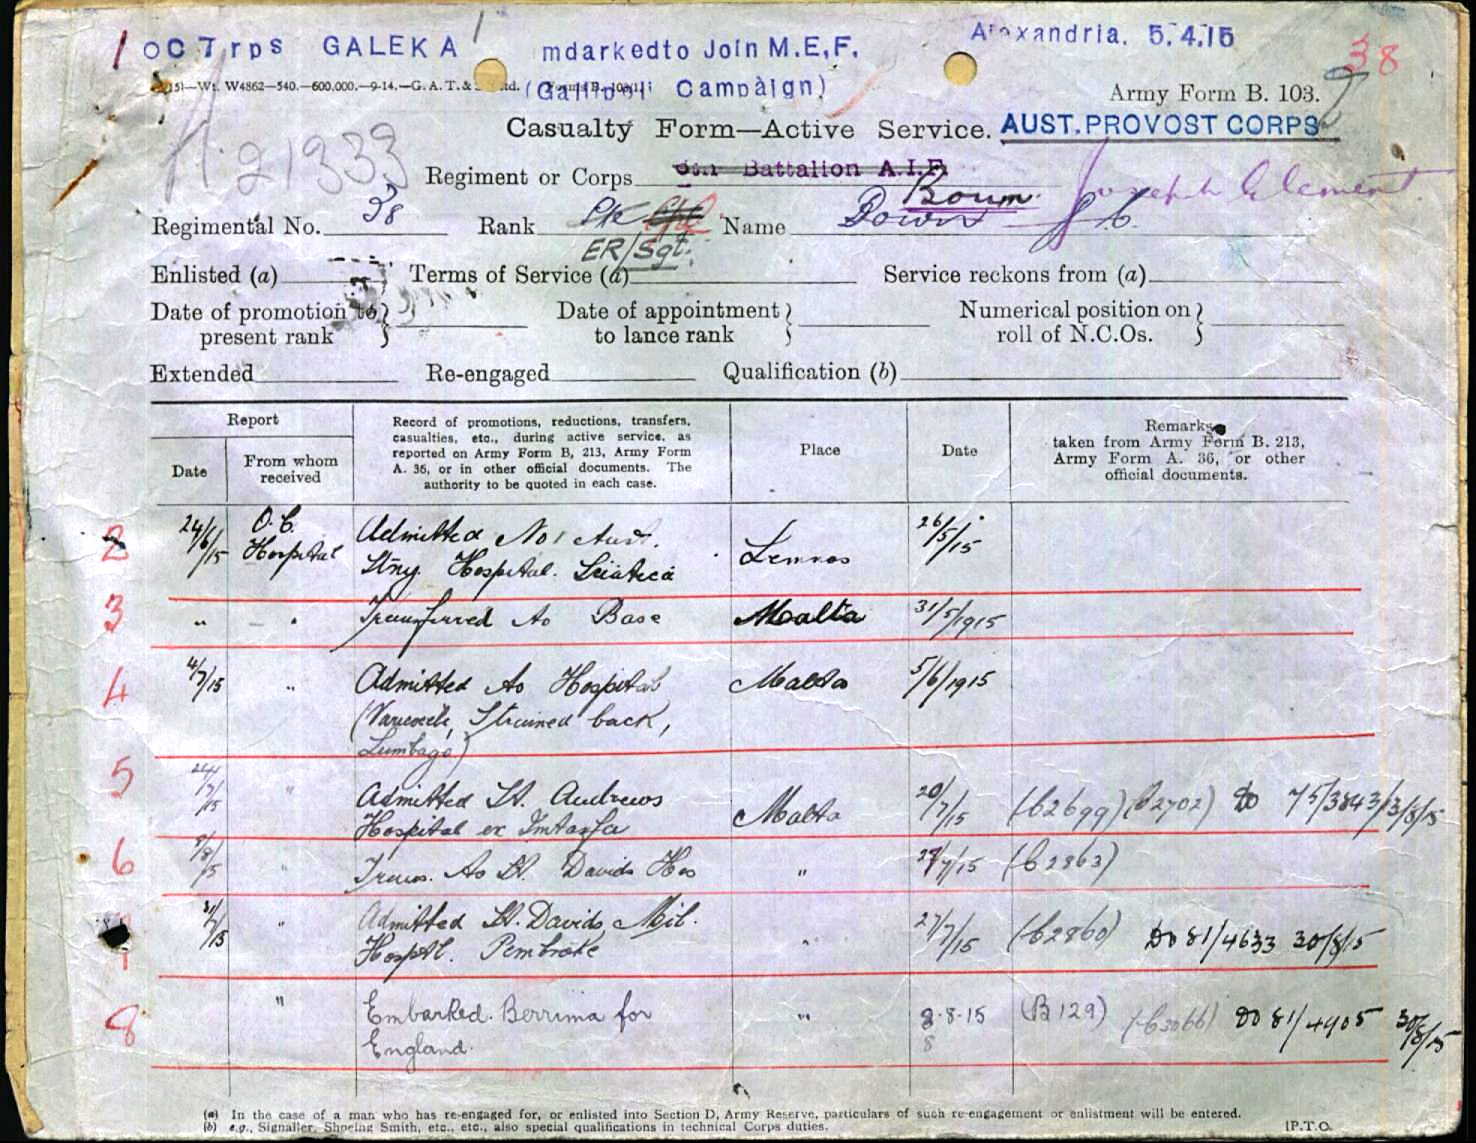 1 OC Trps GALEKA mdarkedto Join M.E.F. Alexandria. 5.4.15
38
W4862—540.—600,000.—9-14.—G. A. T. &
(Gallipoli Campàign)
Army Form B. 103.
Casualty Form—Active Service. AUST. PROVOST CORPS
21333
Regiment or Corps 6th Battalion A.I.F.
Joseph Clement
Regimental No. 38 Rank Pte Name Down J C.
ER/Sgt.
Enlisted (a) Terms of Service (a) Service reckons from (a)
Date of promotion to } Date of appointment } Numerical position on }
present rank to lance rank roll of N.C.Os.
Extended Re-engaged Qualification (b)
Report
Date
From whom
received
Record of promotions, reductions, transfers,
casualties, etc., during active service, as
reported on Army Form B, 213, Army Form
A. 36, or in other official documents. The
authority to be quoted in each case.
Place
Date
Remarks
taken from Army Form B. 213,
Army Form A. 36, or other
official documents.
2 24/6/15 O.C. Hospital Admitted No 1 Aust. Lemnos 26/5/15
Stny. Hospital. Sciatica
3 " " Transferred to Base Malta 31/5/1915
4 4/7/15 " Admitted to Hospital Malta 5/6/1915
(Varicocele, Strained back,
Lumbago)
5 24/7/15 " Admitted St. Andrews Malta 20/7/15 (C2699) (C2702) DO 75/3843 13/8/15
Hospital ex Imtarfa
6 8/8/15 " Trans. to St. Davids Hos " 27/7/15 (C2863)
7 31/7/15 " Admitted St. Davids Mil. " 27/7/15 (C2860) DO 81/4633 30/8/15
Hosptl. Pembroke
8 " Embarked. Berrima for " 8-8-15 (B129) (C3066) DO 81/4905 30/8/15
England.
(a) In the case of a man who has re-engaged for, or enlisted into Section D, Army Reserve, particulars of such re-engagement or enlistment will be entered.
(b) e.g., Signaller, Shoeing Smith, etc., etc., also special qualifications in technical Corps duties. [P.T.O.